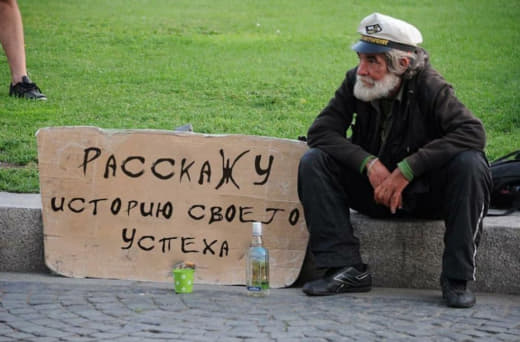 Расскажу
историю своеjо
успеха